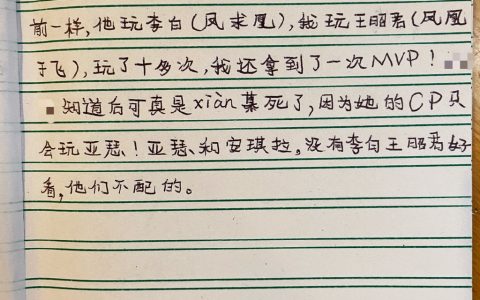 前一样，他玩李白(凤求凰)，我玩王昭君(凤凰
于飞)，玩了十多次，我还拿到了一次MVP！
知道后可真是xiàn慕死了，因为她的CP只
会玩亚瑟！亚瑟和安琪拉，没有李白王昭君好
看，他们不配的。